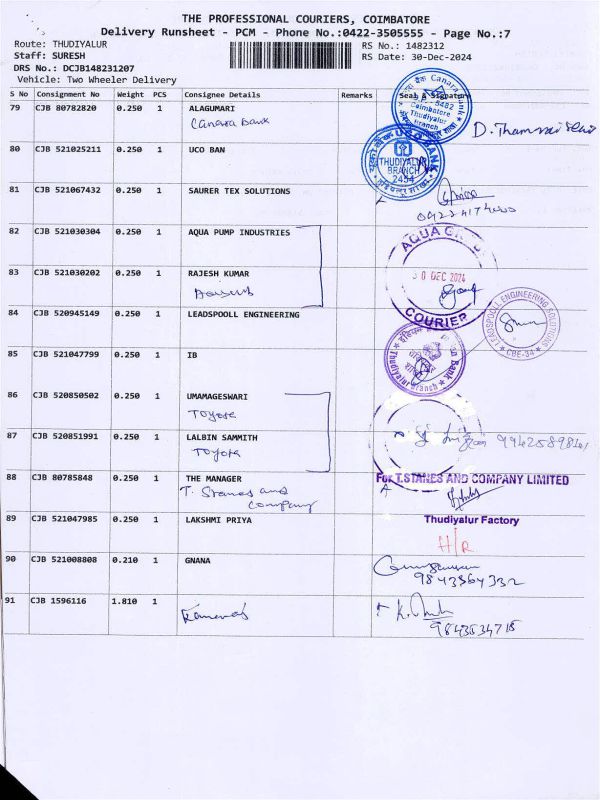 THE PROFESSIONAL COURIERS, COIMBATORE
Delivery Runsheet - PCM - Phone No.:0422-3505555 - Page No.:7
Route: THUDIYALUR
RS No.: 1482312
Staff: SURESH
RS Date: 30-Dec-2024
DRS No.: DCJB148231207
Vehicle: Two Wheeler Delivery
S No Consignment No Weight PCS Consignee Details Remarks Seal & Signature
79 CJB 80782820 0.250 1 ALAGUMARI
Canara Bank
Coimbatore
Thudiyalur
Branch
80 CJB 521025211 0.250 1 UCO BAN
UCO BANK
THUDIYALUR
BRANCH
2454
81 CJB 521067432 0.250 1 SAURER TEX SOLUTIONS
82 CJB 521030304 0.250 1 AQUA PUMP INDUSTRIES
AQUA
30 DEC 2024
COURIER
83 CJB 521030202 0.250 1 RAJESH KUMAR
84 CJB 520945149 0.250 1 LEADSPOOLL ENGINEERING
LEADSPOOLL ENGINEERING SOLUTIONS
CBE-34
85 CJB 521047799 0.250 1 IB
Thudiyalur Branch
86 CJB 520850502 0.250 1 UMAMAGESWARI
Toyota
87 CJB 520851991 0.250 1 LALBIN SAMMITH
Toyota
88 CJB 80785848 0.250 1 THE MANAGER
T. Stanes and
Company
For T.STANES AND COMPANY LIMITED
Thudiyalur Factory
89 CJB 521047985 0.250 1 LAKSHMI PRIYA
H/R
90 CJB 521008808 0.210 1 GNANA
9843564332
91 CJB 1596116 1.810 1
9843534715